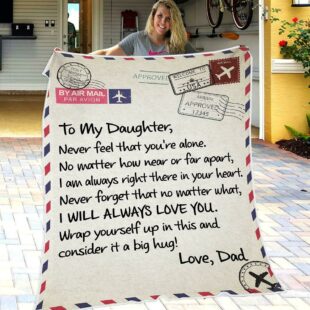 APPROVED
BY AIR MAIL
PAR AVION
APPROVED
12345
To My Daughter,
Never feel that you're alone.
No matter how near or far apart,
I am always right there in your heart.
Never forget that no matter what,
I WILL ALWAYS LOVE YOU.
Wrap yourself up in this and
consider it a big hug!
Love, Dad